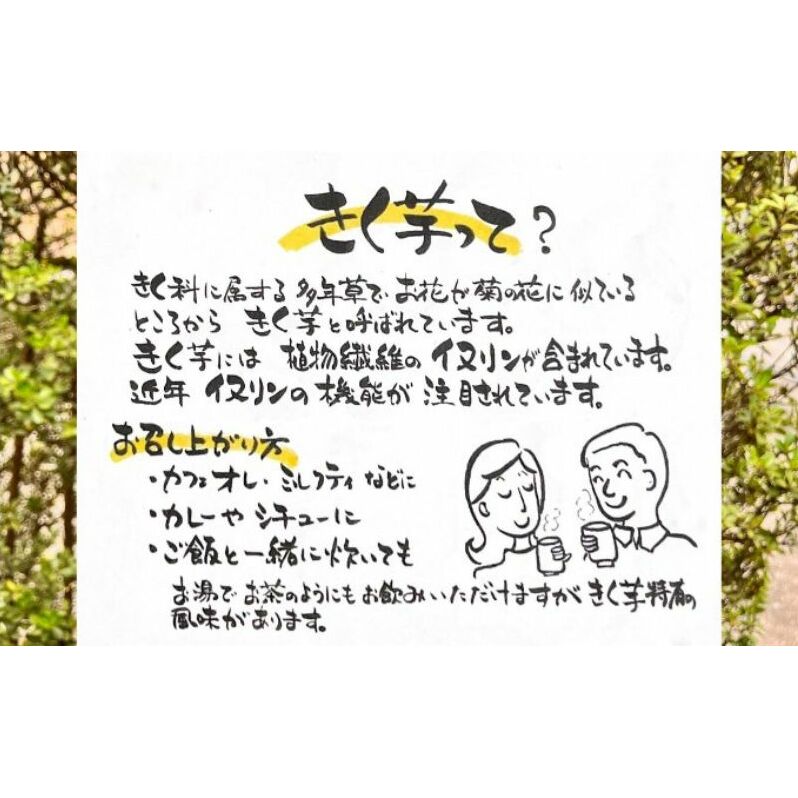 きく芋って?
きく科に属する 多年草で お花が 菊の花に 似ている
ところから きく芋と呼ばれています。
きく芋には 植物繊維の イヌリンが含まれています。
近年 イヌリンの 機能が 注目されています。
お召し上がり方
・カフェオレ・ミルクティなどに
・カレーや シチューに
・ご飯と一緒に炊いても
お湯で お茶のようにも お飲みいただけますが きく芋特有の
風味があります。